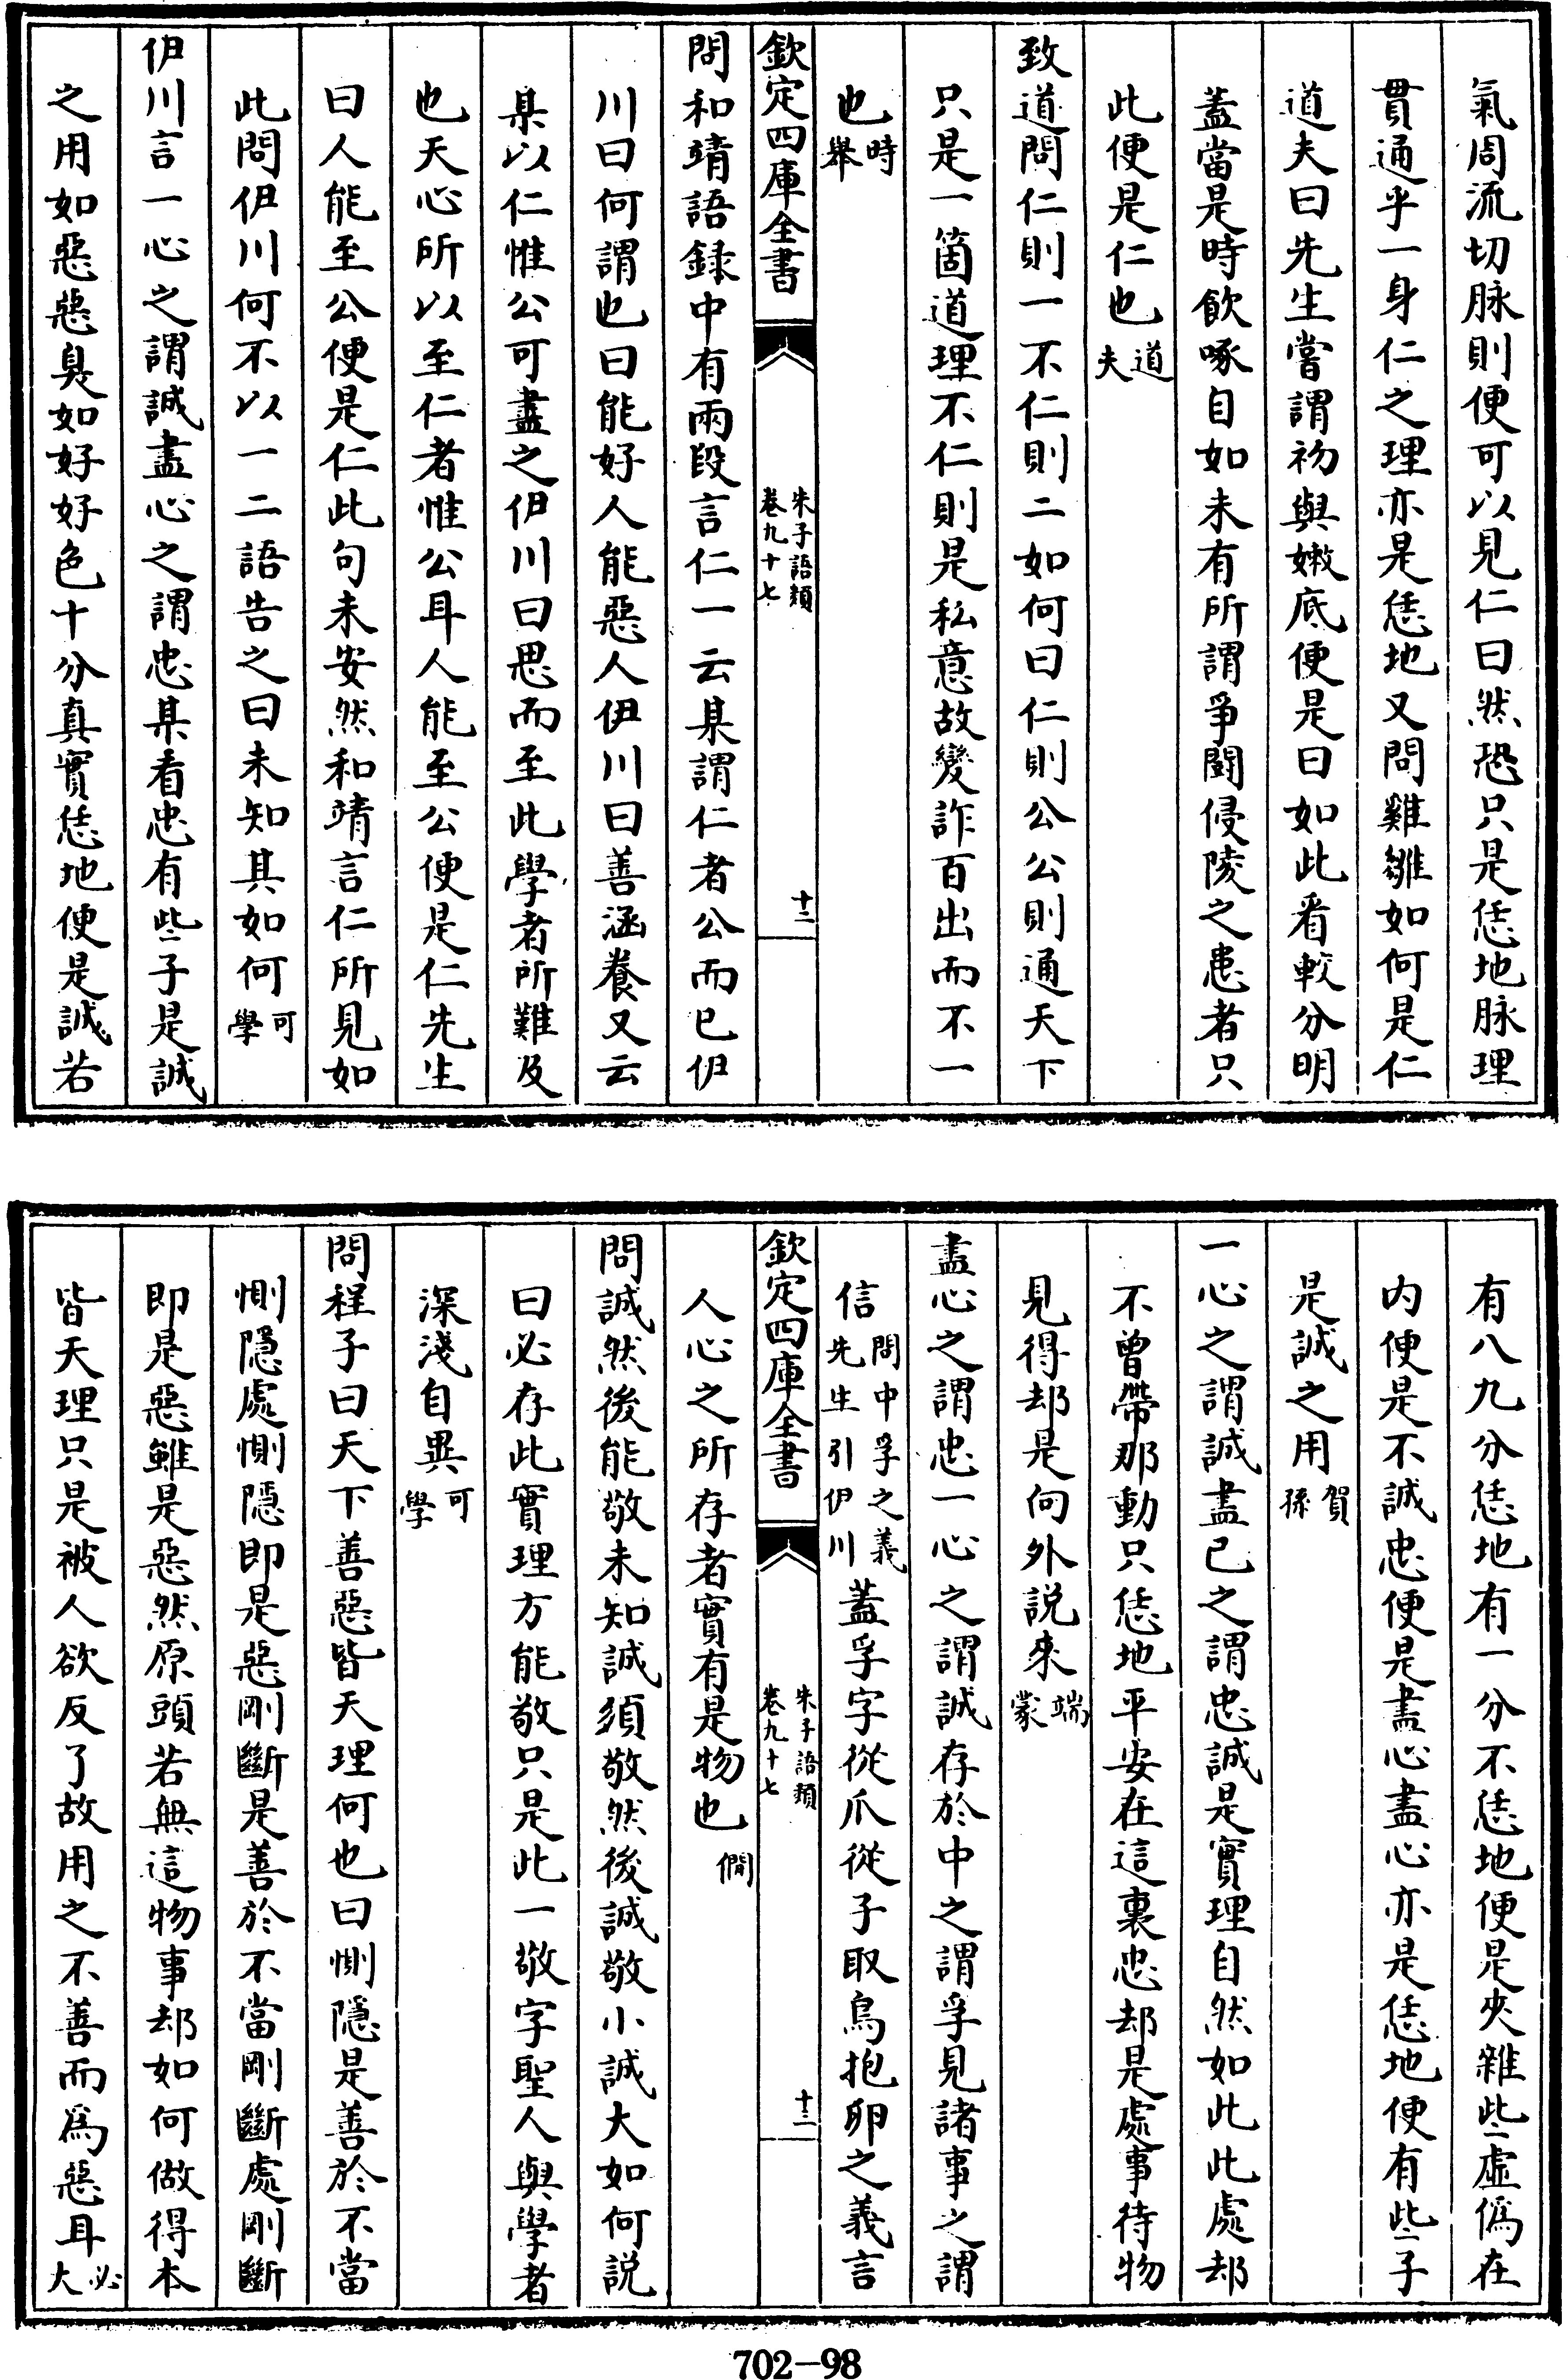 氣周流切脉則便可以見仁曰然恐只是恁地脉理
貫通乎一身仁之理亦是恁地又問雞雛如何是仁
道夫曰先生嘗謂初與嫩底便是曰如此看較分明
蓋當是時飲啄自如未有所謂爭鬭侵陵之患者只
此便是仁也道夫
致道問仁則一不仁則二如何曰仁則公公則通天下
只是一箇道理不仁則是私意故變詐百出而不一
也時舉
欽定四庫全書
朱子語類
卷九十七
十二
問和靖語録中有兩段言仁一云某謂仁者公而已伊
川曰何謂也曰能好人能惡人伊川曰善涵養又云
某以仁惟公可盡之伊川曰思而至此學者所難及
也天心所以至仁者惟公耳人能至公便是仁先生
曰人能至公便是仁此句未安然和靖言仁所見如
此問伊川何不以一二語告之曰未知其如何可學
伊川言一心之謂誠盡心之謂忠某看忠有些子是誠
之用如惡惡臭如好好色十分真實恁地便是誠若
有八九分恁地有一分不恁地便是夾雜些虚僞在
内便是不誠忠便是盡心盡心亦是恁地便有些子
是誠之用賀孫
一心之謂誠盡已之謂忠誠是實理自然如此此處却
不曾帶那動只恁地平安在這裏忠却是處事待物
見得却是向外説來端蒙
盡心之謂忠一心之謂誠存於中之謂孚見諸事之謂
信問中孚之義先生引伊川蓋孚字從爪從子取鳥抱卵之義言
欽定四庫全書
朱子語類
卷九十七
十三
人心之所存者實有是物也僩
問誠然後能敬未知誠須敬然後誠敬小誠大如何説
曰必存此實理方能敬只是此一敬字聖人與學者
深淺自異可學
問程子曰天下善惡皆天理何也曰惻隠是善於不當
惻隠處惻隠即是惡剛斷是善於不當剛斷處剛斷
即是惡雖是惡然原頭若無這物事却如何做得本
皆天理只是被人欲反了故用之不善而爲惡耳必大
702-98